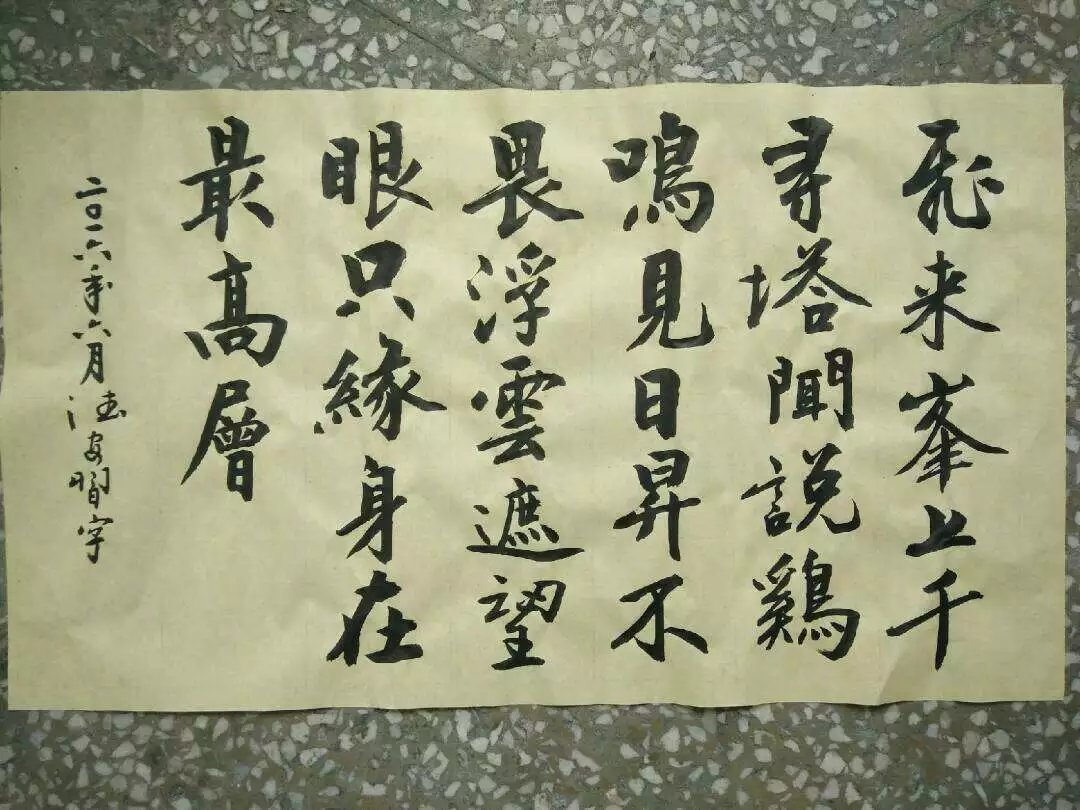 飛来峯上千
尋塔聞説鷄
鳴見日昇不
畏浮雲遮望
眼只緣身在
最高層
二〇一六年六月